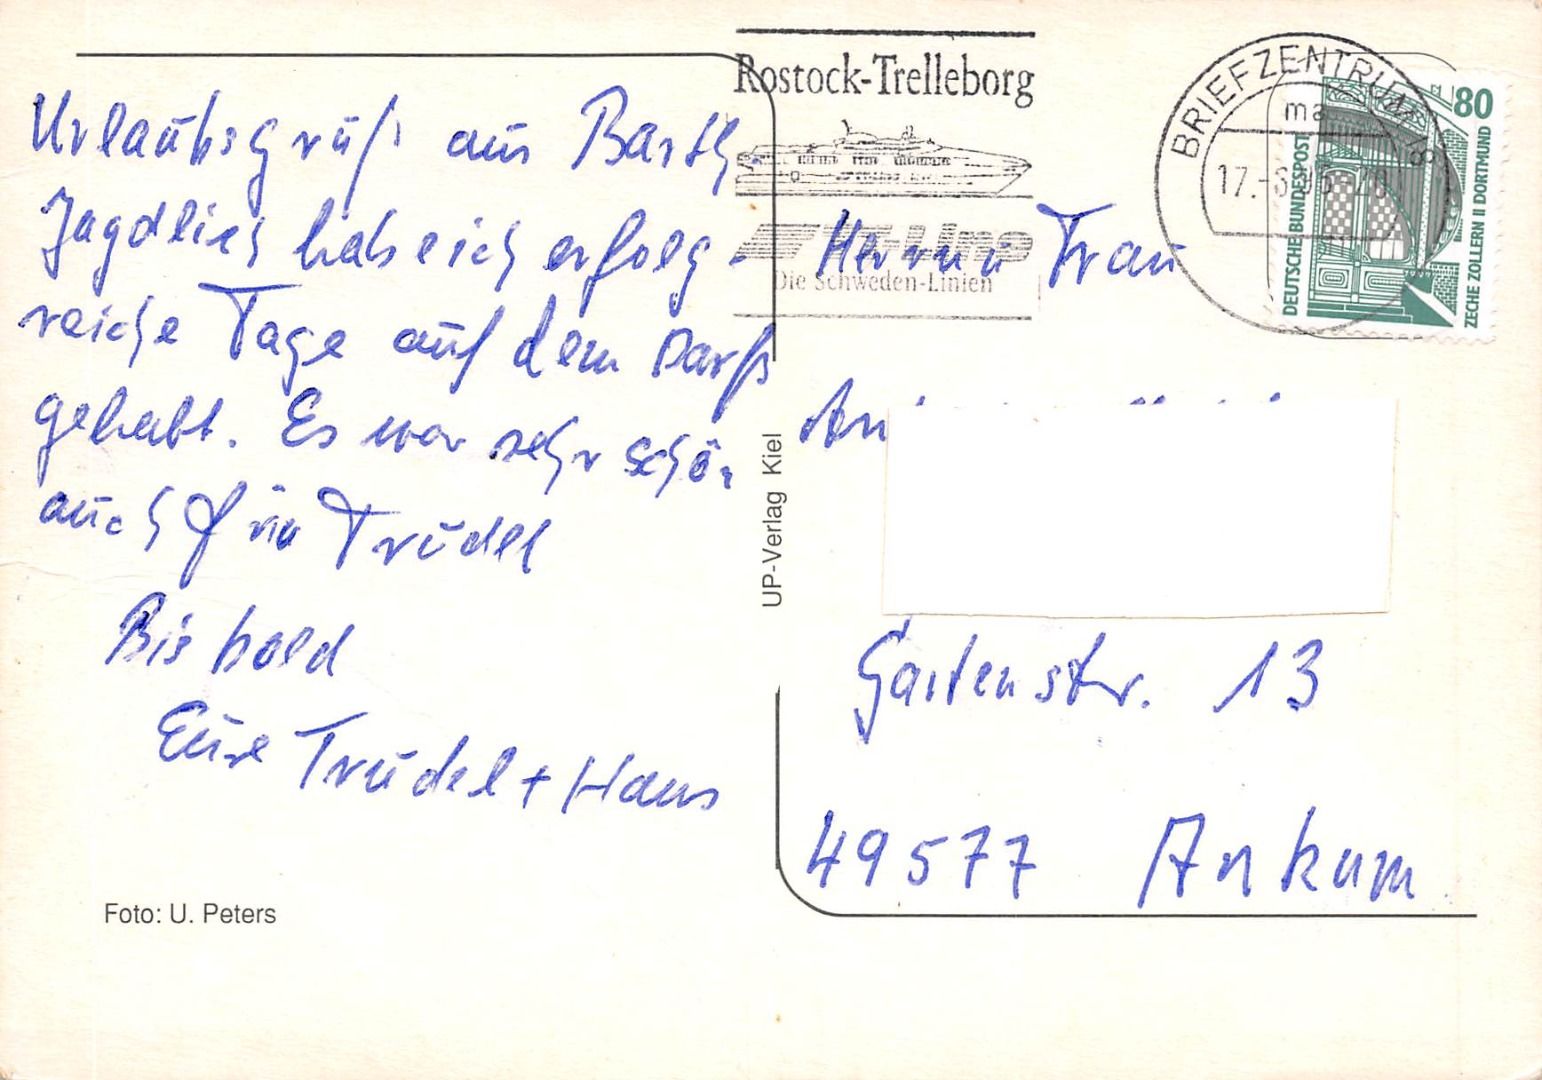 Urlaubsgruß aus Barth
Jagdlich habe ich erfolg-
reiche Tage auf dem Darß
gehabt. Es war sehr schön
auch für Trudel
Bis bald
Eure Trudel + Hans
Foto: U. Peters
UP-Verlag Kiel
Rostock-Trelleborg
Die Schweden-Linien
BRIEFZENTRUM 18
ma
17.-
80
DEUTSCHE BUNDESPOST
ZECHE ZOLLERN II DORTMUND
Herrn u Frau
An
Gartenstr. 13
49577 Ankum